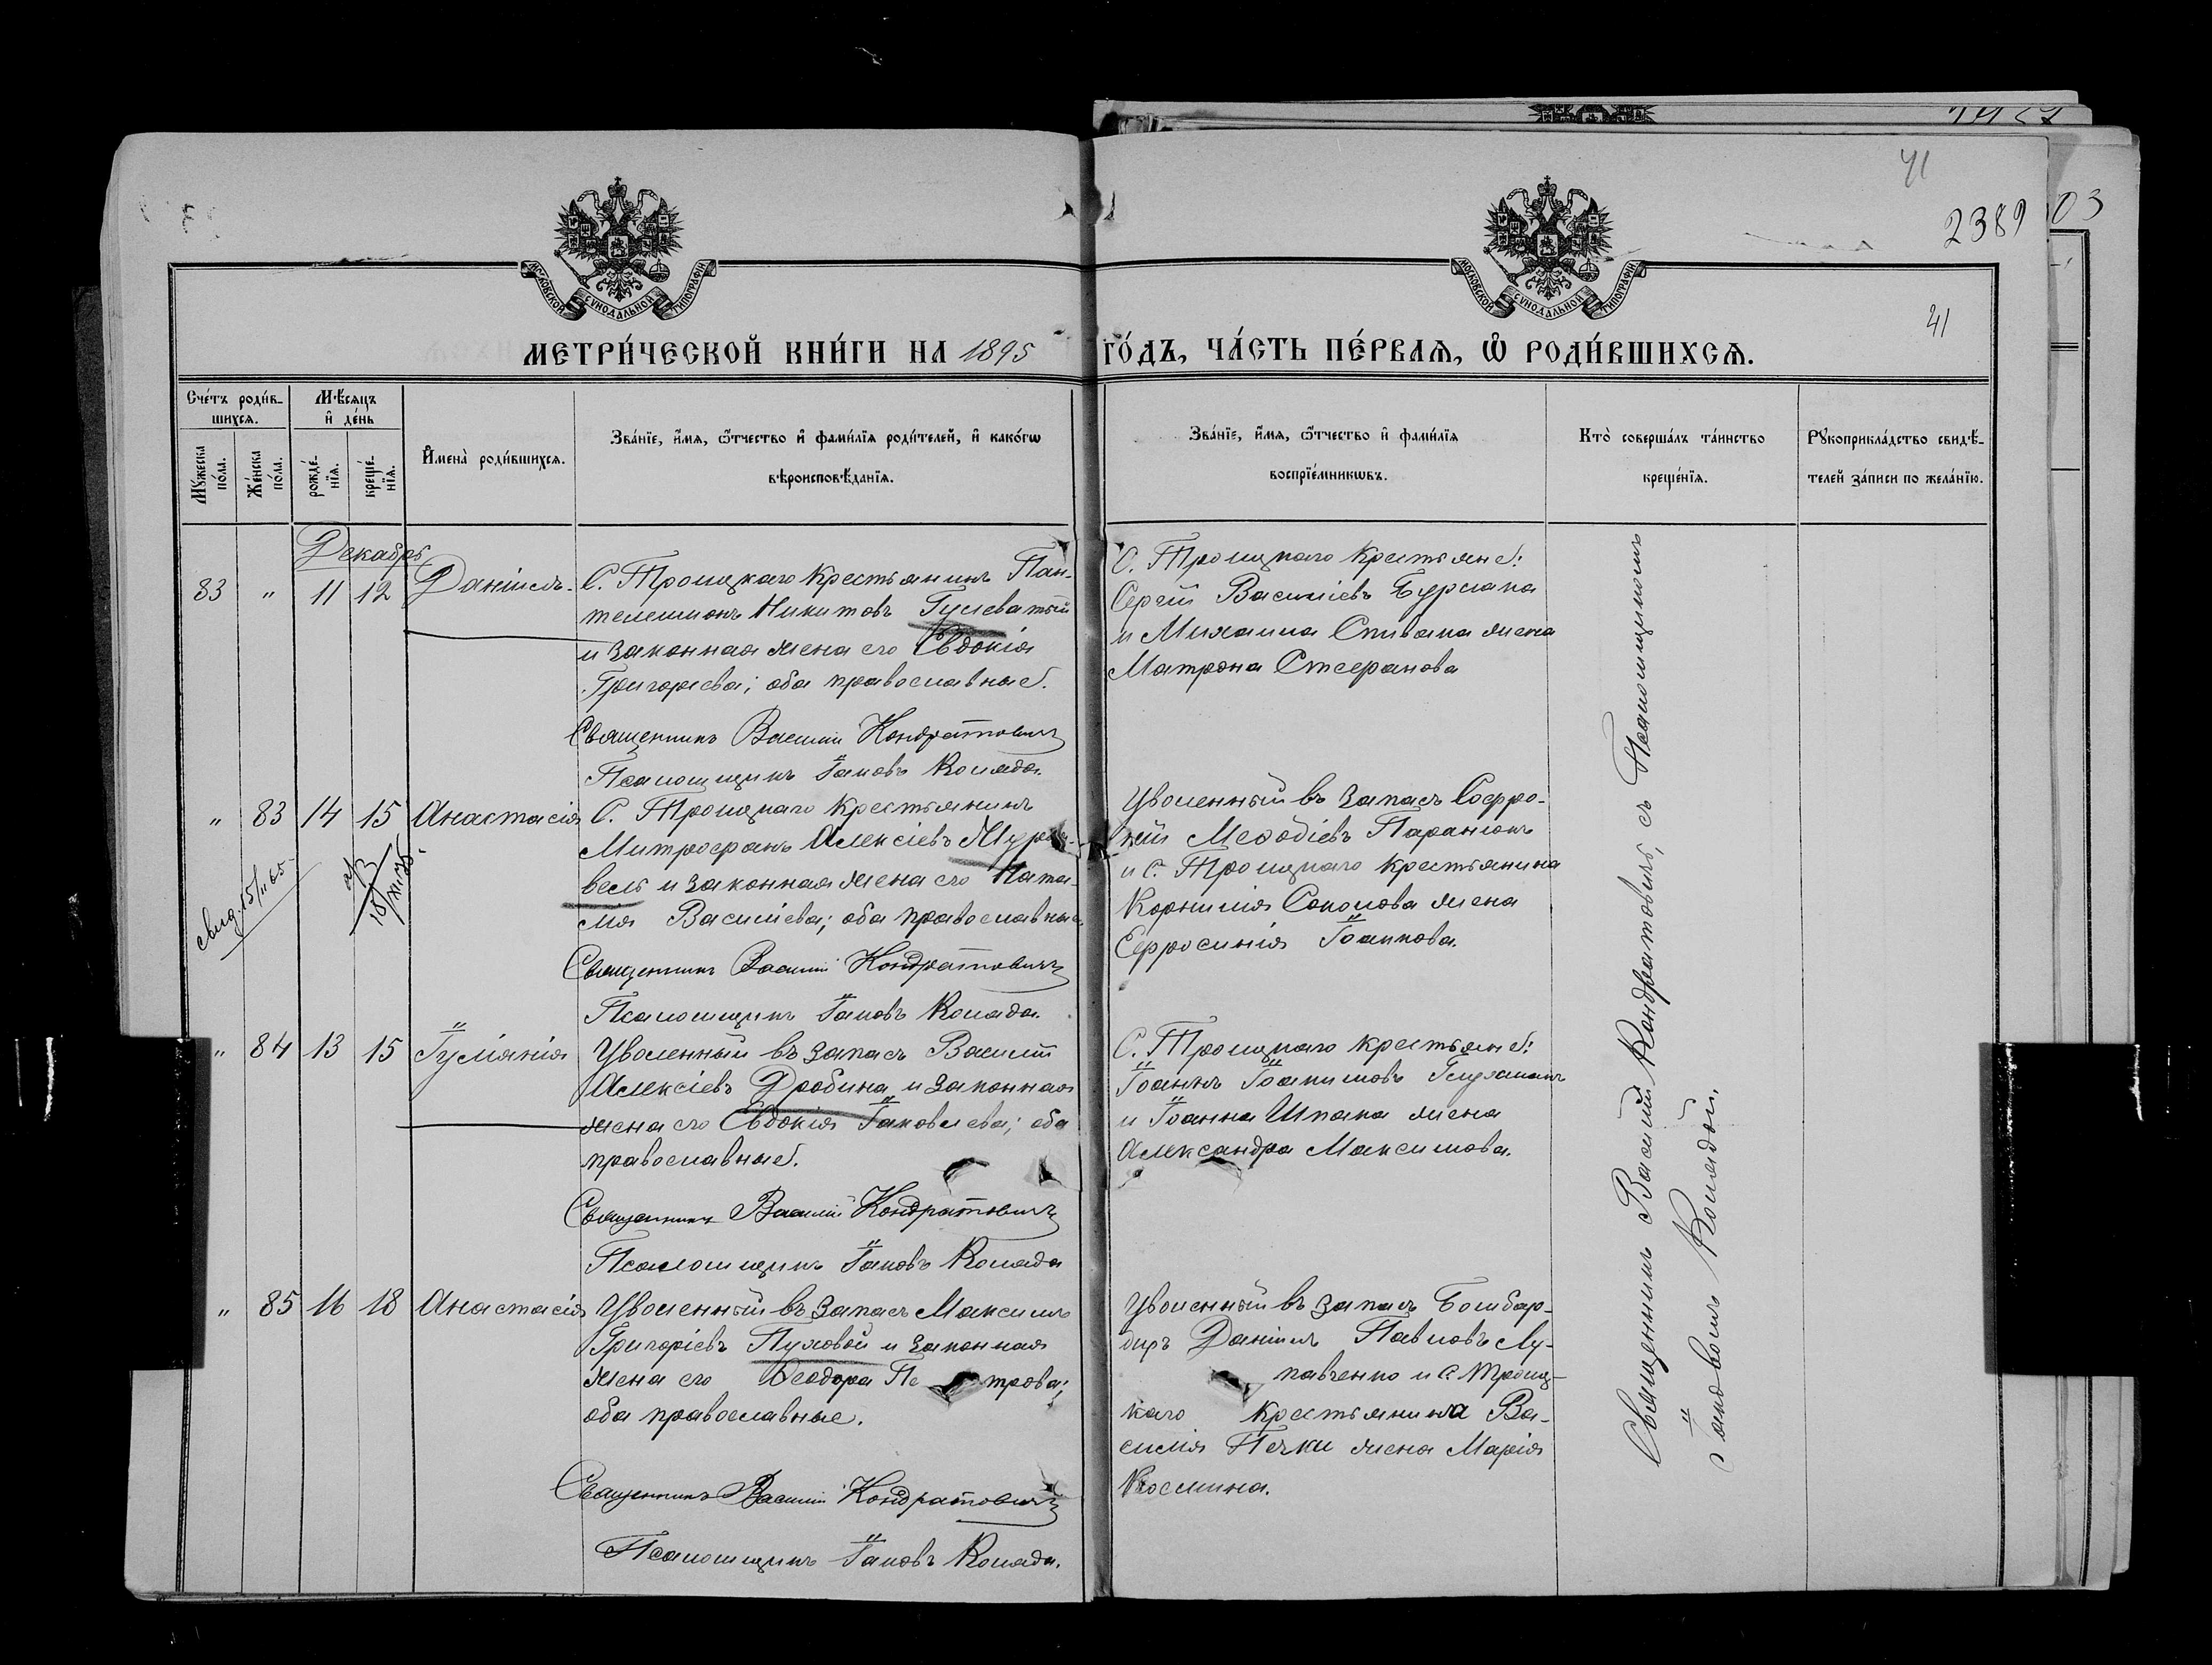 41
2389
03
41
МОСКОВСКОЙ СѴНОДАЛЬНОЙ ТИПОГРАФІИ
МОСКОВСКОЙ СѴНОДАЛЬНОЙ ТИПОГРАФІИ
МЕТРИ́ЧЕСКОЙ КНИ́ГИ НА 1895 ГО́ДЪ, ЧА́СТЬ ПЕ́РВАѦ, Ѡ҆ РОДИ́ВШИХСѦ.
Сче́тъ роди́в-
шихсѧ.
Мѣ́сѧцъ
и҆ де́нь
Мꙋ́жеска
по́ла.
Же́нска
по́ла.
рожде́-
нїѧ.
креще́-
нїѧ.
И҆мена̀ роди́вшихсѧ.
Зва́нїе, и҆́мѧ, ѻ҆́тчество и҆ фами́лїѧ роди́телей, и҆ како́гѡ
вѣроисповѣ́данїѧ.
Зва́нїе, и҆́мѧ, ѻ҆́тчество и҆ фами́лїѧ
воспрїе́мникѡвъ.
Кто̀ соверша́лъ та́инство
креще́нїѧ.
Рꙋкоприкла́дство свидѣ́-
телей за́писи по жела́нїю.
Декабрь
83 " 11 12 Даніилъ.
С. Троицкаго крестьянинъ Пан-
телеимонъ Никитовъ Гулеватый
и законная жена его Евдокія
Григорьева; оба православные.
Священникъ Василій Кондратовичъ
Псаломщикъ Іаковъ Коляда.
С. Троицкаго крестьяне:
Сергій Василіевъ Бурлака
и Михаила Спивака жена
Матрона Стефанова
" 83 14 15 Анастасія
свид. 15/II 65
18/XII 35
С. Троицкаго крестьянинъ
Митрофанъ Алексіевъ Жура-
вель и законная жена его Ната-
лія Василіева; оба православные.
Священникъ Василій Кондратовичъ
Псаломщикъ Іаковъ Коляда.
Уволенный въ запасъ Софро-
ній Меѳодіевъ Паранюкъ
и с. Троицкаго крестьянина
Корнилія Соколова жена
Ефросинія Іоаннова.
" 84 13 15 Іуліанія
Уволенный въ запасъ Василій
Алексіевъ Дробина и законная
жена его Евдокія Іаковлева; оба
православные.
Священникъ Василій Кондратовичъ
Псаломщикъ Іаковъ Коляда
С. Троицкаго крестьяне:
Іоаннъ Іоакимовъ
и Іоанна Шпака жена
Александра Максимова.
" 85 16 18 Анастасія
Уволенный въ запасъ Максимъ
Григоріевъ Пуховой и законная
жена его Ѳеодора Петрова;
оба православные.
Священникъ Василій Кондратовичъ
Псаломщикъ Іаковъ Коляда.
Уволенный въ запасъ Бомбар-
диръ Даніилъ Павловъ Лу-
павченко и с. Троиц-
каго крестьянина Ва-
силія Печки жена Марія
Космина.
Священникъ Василій Кондратовичъ, съ Псаломщикомъ
Іаковомъ Колядой.